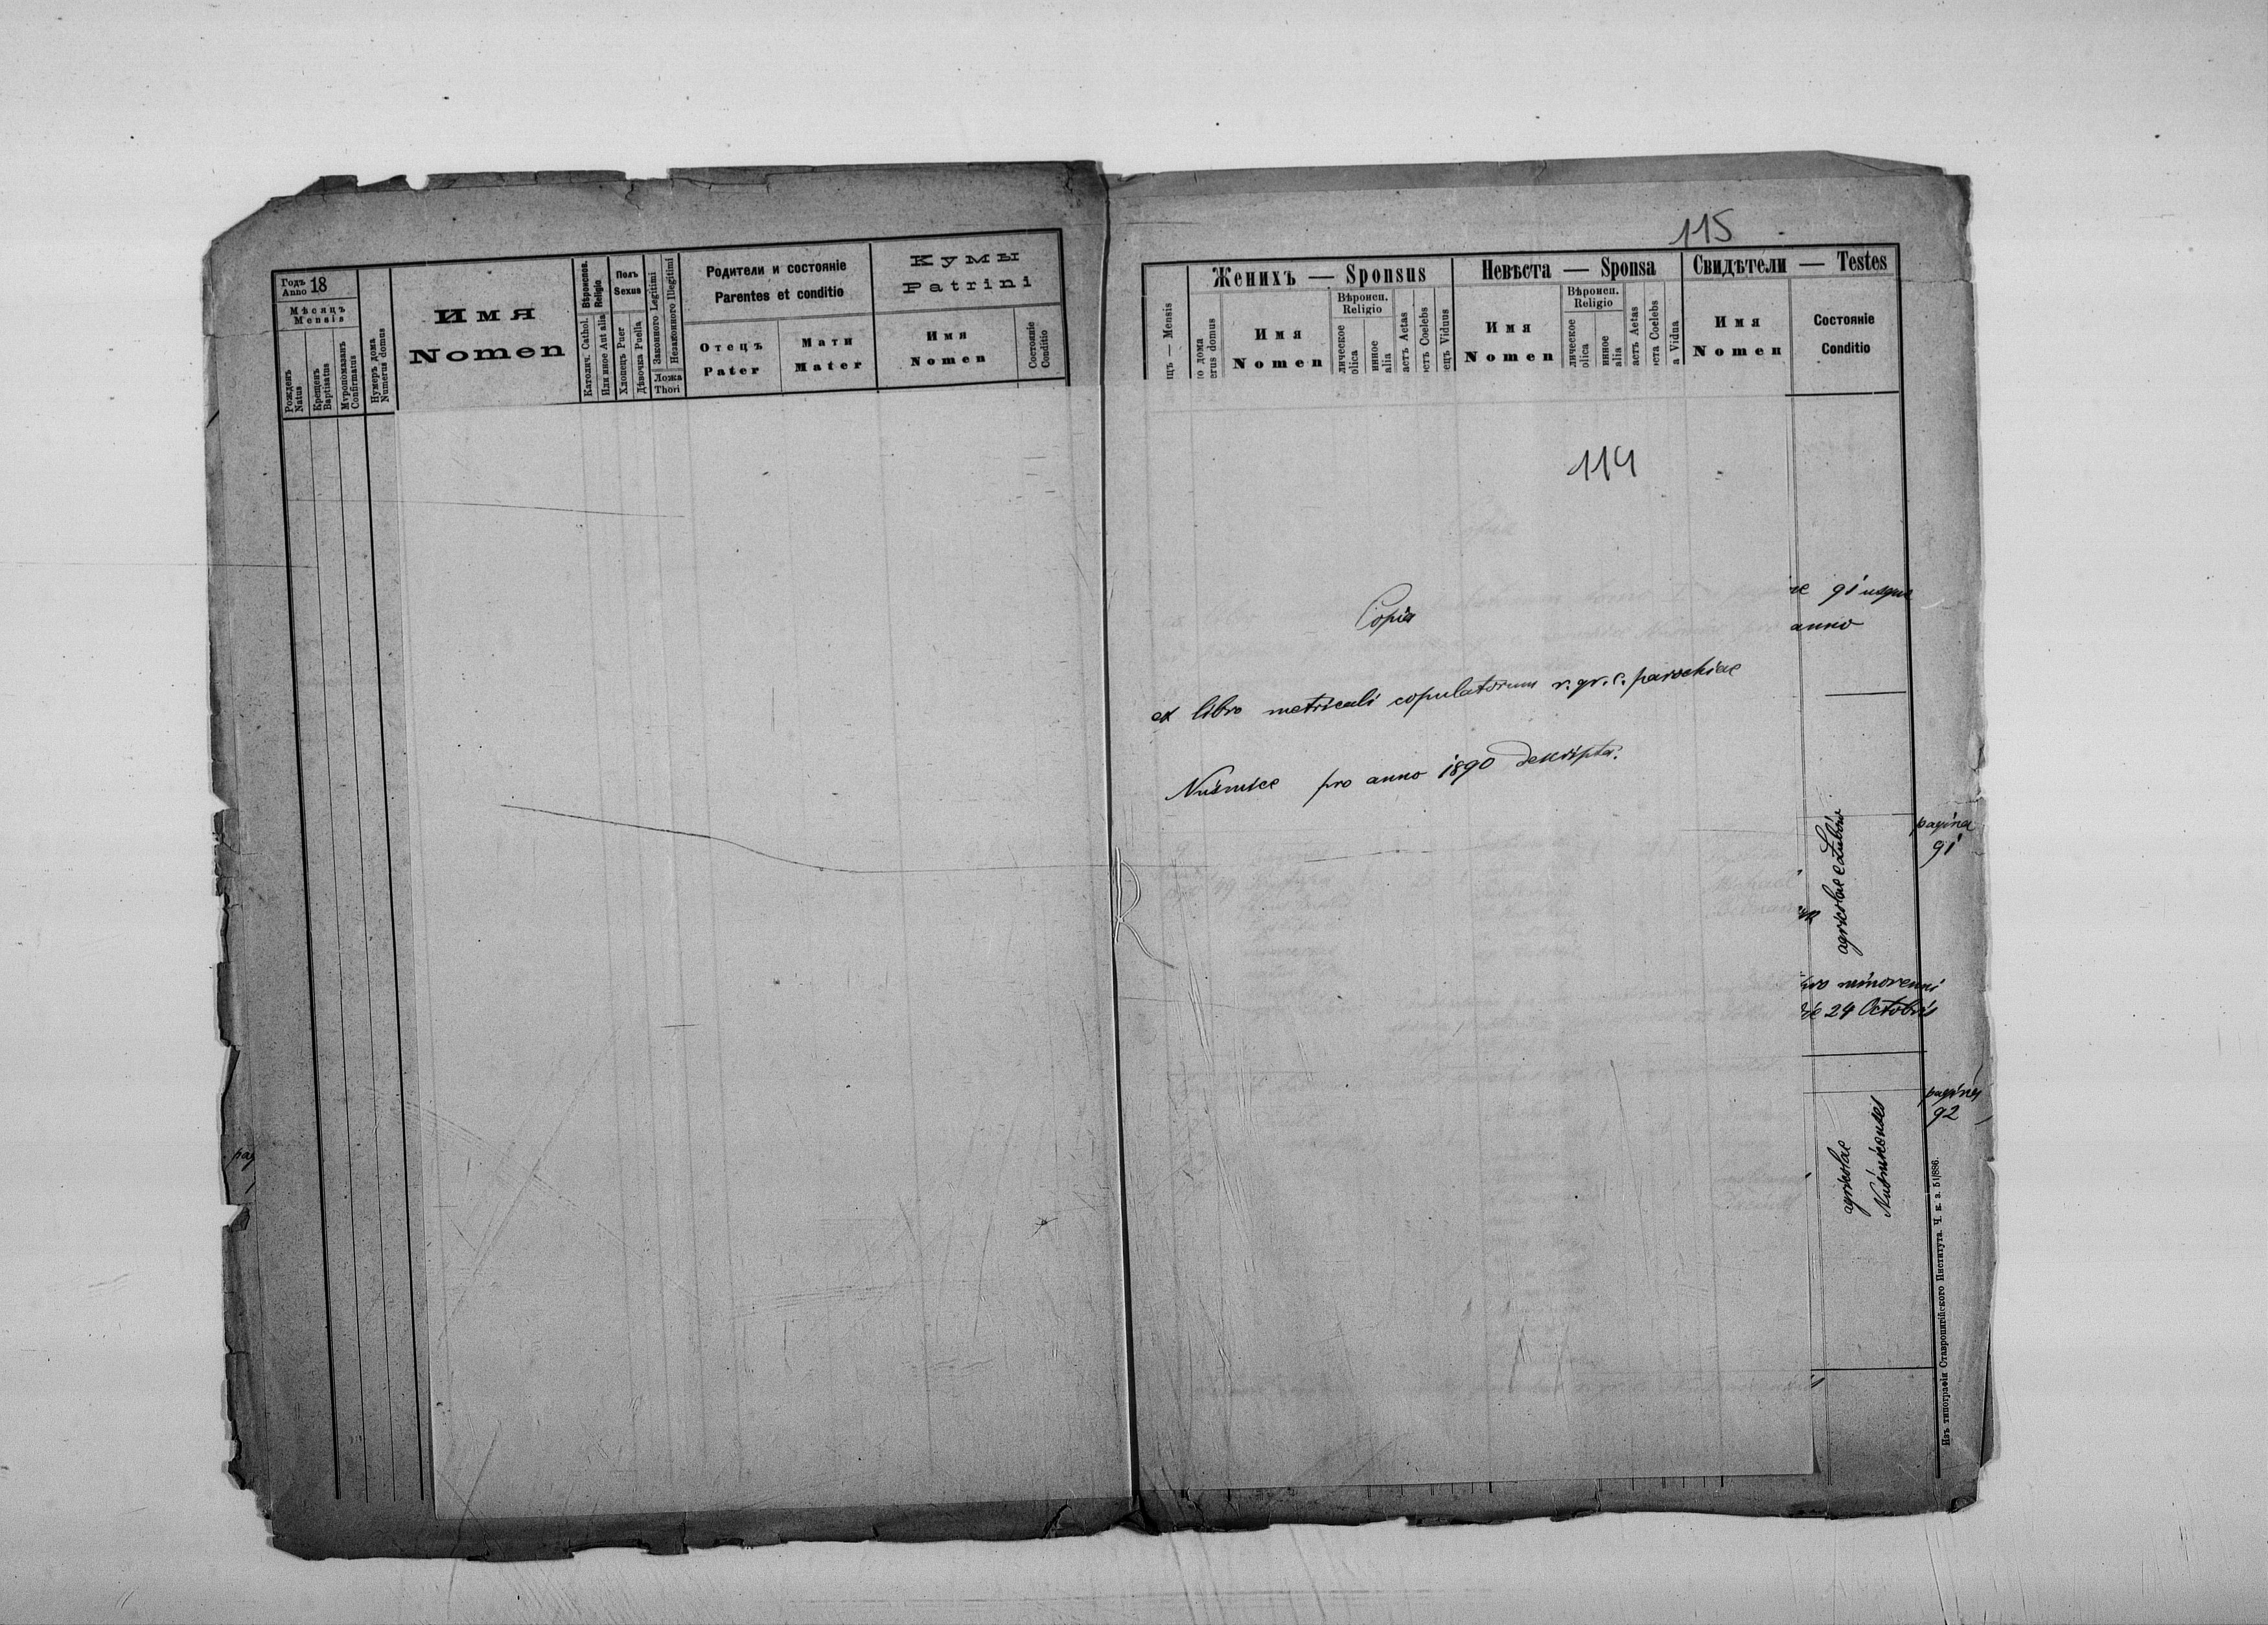 Годъ Anno 18
Мѣсяцъ
Mensis
Рожденъ
Natus
Крещенъ
Baptisatus
Мѵропомазанъ
Confirmatus
Нумеръ дома
Numerus domus
Имя
Nomen
Вѣроиспов.
Religio
Католич. Cathol.
Или иное Aut alia
Полъ
Sexus
Хлопецъ Puer
Дѣвочка Puella
Законного Legitimi
Незаконного Illegitimi
Ложа
Thori
Родители и состояніе
Parentes et conditio
Отецъ
Pater
Мати
Mater
Кумы
Patrini
Имя
Nomen
Состояніе
Conditio
pag
115
Женихъ — Sponsus
Невѣста — Sponsa
Свидѣтели — Testes
цъ — Mensis
о дома
erus domus
Имя
Nomen
Вѣроисп.
Religio
лическое
olica
инное
alia
астъ Aetas
стъ Coelebs
ецъ Viduus
Имя
Nomen
Вѣроисп.
Religio
лическое
olica
инное
alia
астъ Aetas
ста Coelebs
а Vidua
Имя
Nomen
Состояніе
Conditio
114
ae 91 usque
anno
Copia
ex libro metricali copulatorum r. gr. c. parochiae
Nuśmice pro anno 1890 descripta.
agricolae e Lubów
pagina
91
pro minorenni
de 24 Octobris
agricolae
Nuśmicenses
pagina
92
Изъ типографіи Ставропигійского Института. Ч. к. з. 51/886.